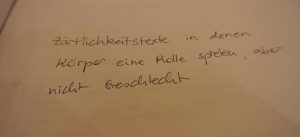 Zärtlichkeitstexte in denen
Körper eine Rolle spielen, aber
nicht Geschlecht